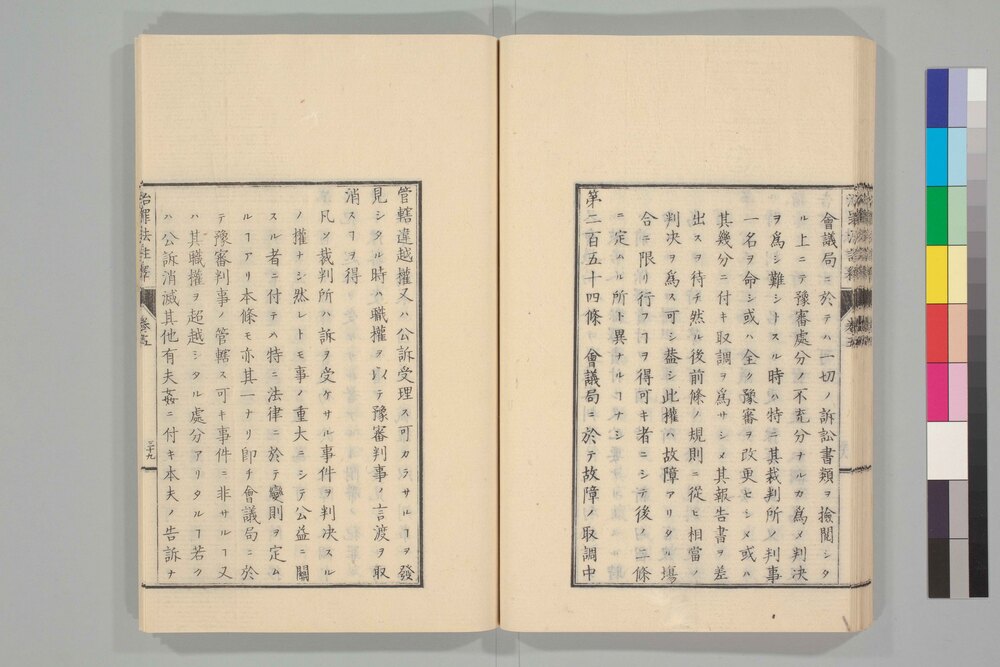 會議局ニ於テハ一切ノ訴訟書類ヲ撿閲シタ
ル上ニテ豫審處分ノ不充分ナルカ為メ判决
ヲ為シ難シトスル時ハ特ニ其裁判所ノ判事
一名ヲ命シ或ハ全ク豫審ヲ改更セシメ或ハ
其幾分ニ付キ取調ヲ為サシメ其報告書ヲ差
出スヲ待チ然ル後前條ノ規則ニ從ヒ相當ノ
判决ヲ為ス可シ葢シ此權ハ故障アリタル塲
合ニ限リ行フヿヲ得可キ者ニシテ後ノ二條
ニ定ムル所ト異ナルヿナシ
第二百五十四條 會議局ニ於テ故障ノ取調中
管轄違越權又ハ公訴受理ス可カラサルヿヲ發
見シタル時ハ職權ヲ以テ豫審判事ノ言渡ヲ取
消スヿヲ得
凡ソ裁判所ハ訴ヲ受ケサル事件ヲ判决スル
ノ權ナシ然レトモ事ノ重大ニシテ公益ニ關
スル者ニ付テハ特ニ法律ニ於テ變則ヲ定ム
ルヿアリ本條モ亦其一ナリ即チ會議局ニ於
テ豫審判事ノ管轄ス可キ事件ニ非サルヿ又
ハ其職權ヲ超越シタル處分アリタルヿ若ク
ハ公訴消滅其他有夫姦ニ付キ本夫ノ告訴ナ
治罪法註釋 卷五 三十九